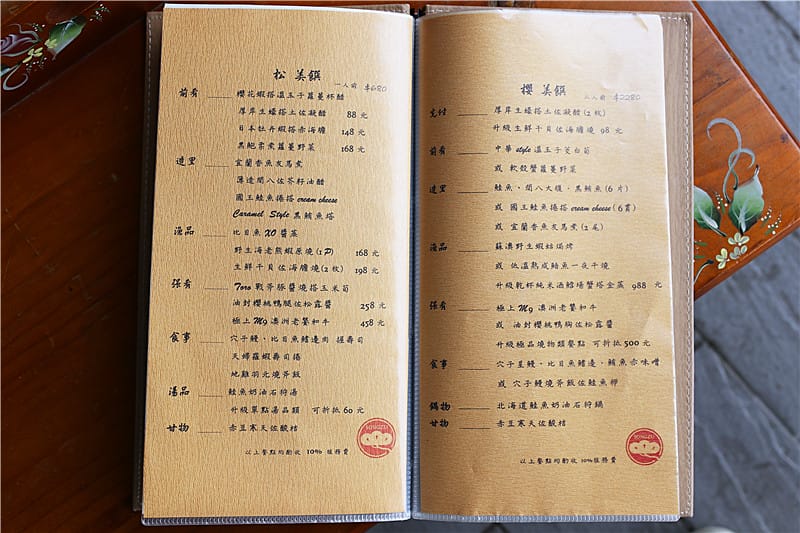 松 美饌
一人前 $680
前肴 櫻花蝦搭溫玉子蘿蔓杯醋
厚岸生蠔搭土佐凝醋 88 元
日本牡丹蝦搭赤海膽 148 元
黑鮑索素蘿蔓野菜 168 元
造里 宜蘭香魚友馬煮
薄造間八佐芥籽油醋
國王鮭魚捲搭 cream cheese
Caramel Style 黑鮪魚塔
漁品 比目魚 XO 醬蒸
野生海老熊蝦原燒(1P) 168 元
生鮮干貝佐海膽燒(2枚) 198 元
強肴 Toro 戰斧豚醬燒搭玉米筍
油封櫻桃鴨腿佐松露醬 258 元
極上 M9 澳洲老饕和牛 458 元
食事 穴子鰻、比目魚鰭邊肉 握壽司
天婦羅蝦壽司捲
地雞羽元燒斧飯
湯品 鮭魚奶油石狩湯
升級單點湯品類 可折抵 60 元
甘物 赤豆寒天佐酸桔
以上餐點均酌收 10% 服務費
櫻 美饌
$2280
先付 厚岸生蠔搭土佐凝醋(2枚)
升級生鮮干貝佐海膽燒 98 元
前肴 中華 style 溫玉子茭白筍
或 軟殼蟹蘿蔓野菜
造里 鮭魚、間八大腹、黑鮪魚(6片)
或 國王鮭魚捲搭 cream cheese(6貫)
或 宜蘭香魚友馬煮(2尾)
漁品 蘇澳野生蝦姑焗烤
或 低溫熟成鮭魚一夜干燒
升級乾杯純米酒鱈場蟹塔金蒸 988 元
強肴 極上 M9 澳洲老饕和牛
或 油封櫻桃鴨胸佐松露醬
升級極品燒物類餐點 可折抵 500 元
食事 穴子星鰻、比目魚鰭邊、鮪魚赤味噌
或 穴子鰻燒斧飯佐鮭魚柳
鍋物 北海道鮭魚奶油石狩鍋
甘物 赤豆寒天佐酸桔
以上餐點均酌收 10% 服務費